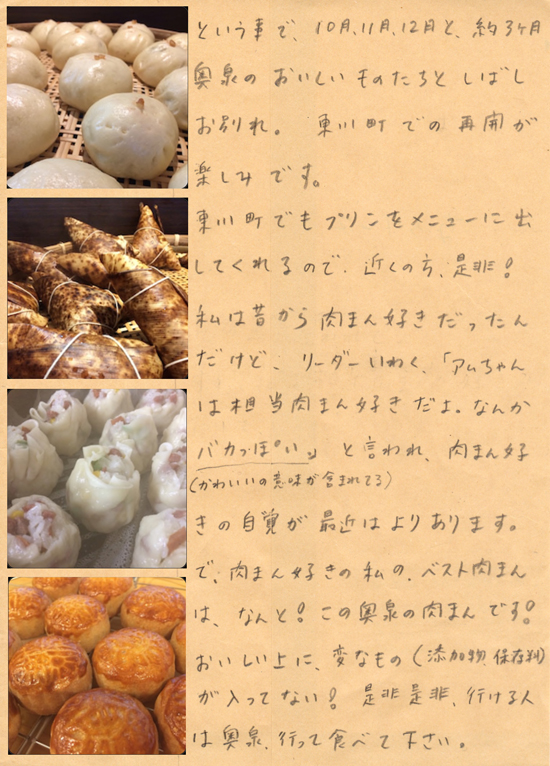 という事で、10月、11月、12月と、約3ヶ月
奥泉の おいしい ものたちと しばし
お別れ。 東川町 での 再開が
楽しみ です。
東川町 でも プリンを メニューに 出
してくれるので、近くの方、是非!
私は昔から 肉まん好き だったん
だけど、リーダー いわく、「アムちゃん
は 相当肉まん好き だよ。なんか
バカっぽい」 と 言われ、肉まん好
(かわいいの意味が含まれてる)
きの自覚が 最近は よりあります。
で、肉まん好きの 私の、ベスト肉まん
は、なんと! この奥泉の肉まん です!
おいしい上に、変なもの (添加物、保存料)
が 入ってない! 是非是非、行ける人
は 奥泉、行って 食べて 下さい。